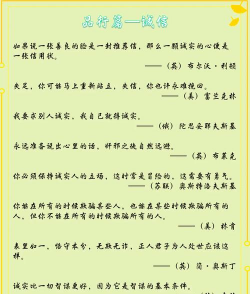 品行篇—诚信
如果说一张善良的脸是一封推荐信，那么一颗诚实的心便是
一张信用状。
——（英）布尔沃·利顿
失足，你可能马上重新站立，失信，你也许永难挽回。
——（美）富兰克林
我要求别人诚实，我自己就得诚实。
——（俄）陀思妥耶夫斯基
永远准备说出心里的话，奸邪之徒自然远避。
——（英）布莱克
你必须保持诚实人的立场，这时常是冒险的，这需要有勇气。
——（苏联）奥斯特洛夫斯基
你能在所有的时候欺骗某些人，也能在某些时候欺骗所有的
人，但你不能在所有的时候欺骗所有的人。
——（美）林肯
表里如一，恪守本分，无欺无诈，正人君子为人处世应该这
样。
——（英）简·奥斯丁
诚实比一切智谋更好，因为它是智谋的基本条件。